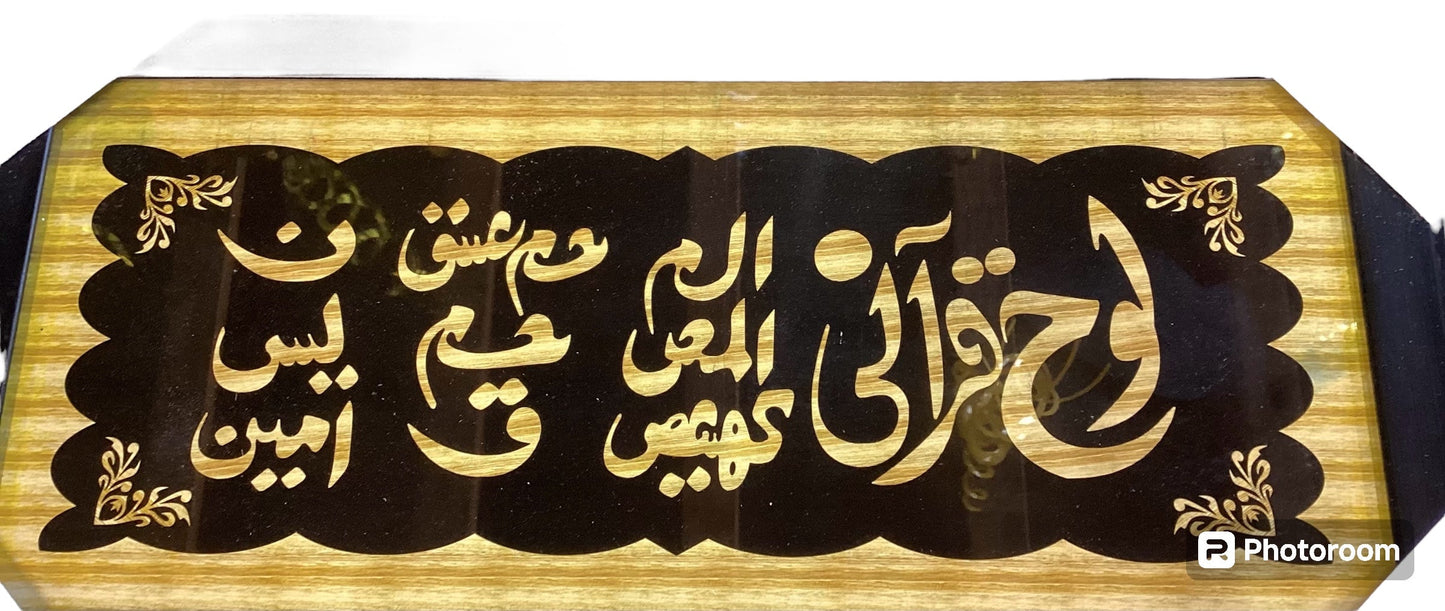 لوح قرآنی
الم
المص
كهيعص
حم عسق
حم
ق
ن
يس
امين
Photoroom